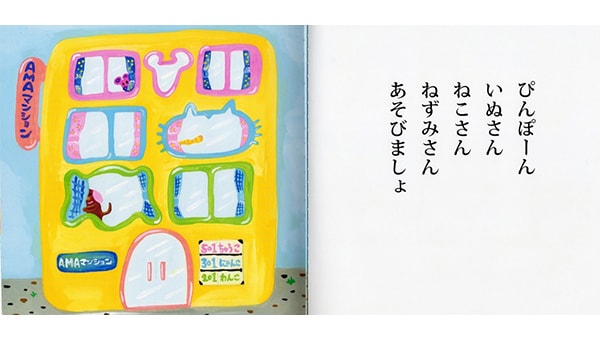 AMAマンション
AMAマンション
501ちゅうこ
301にゃんこ
201わんこ
ぴんぽーん
いぬさん
ねこさん
ねずみさん
あそびましょ